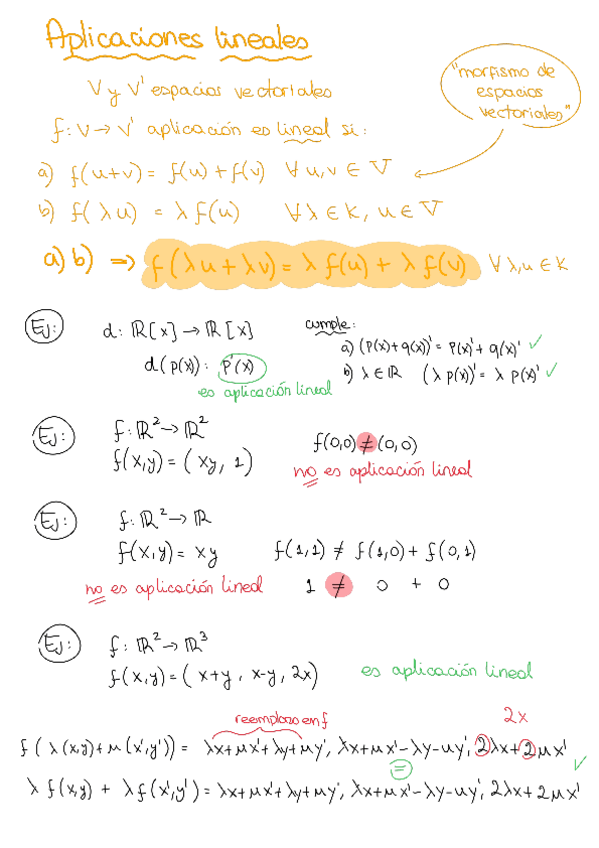 Aplicaciones lineales
V y V' espacios vectoriales
"morfismo de
espacios
vectoriales"
f: V → V' aplicación es lineal si:
a) f(u+v) = f(u) + f(v) ∀ u,v ∈ V
b) f(λu) = λ f(u) ∀ λ ∈ K, u ∈ V
a) b) ⇒ f(λu + λv) = λ f(u) + λ f(v) ∀ λ,u ∈ K
Ej: d: ℝ[x] → ℝ[x] cumple:
a) (p(x)+q(x))' = p(x)' + q(x)' ✓
d(p(x)): p'(x)
b) λ ∈ ℝ (λ p(x))' = λ p(x)' ✓
es aplicación lineal
Ej: f: ℝ² → ℝ²
f(0,0) ≠ (0,0)
f(x,y) = (xy, 1)
no es aplicación lineal
Ej: f: ℝ² → ℝ
f(x,y) = xy f(1,1) ≠ f(1,0) + f(0,1)
no es aplicación lineal 1 ≠ 0 + 0
Ej: f: ℝ² → ℝ³
f(x,y) = (x+y, x-y, 2x) es aplicación lineal
reemplazo en f 2x
f(λ(x,y)+μ(x',y')) = λx+μx'+λy+μy', λx+μx'-λy-μy', 2λx+2μx'
= ✓
λ f(x,y) + λ f(x',y') = λx+μx'+λy+μy', λx+μx'-λy-μy', 2λx+2μx'